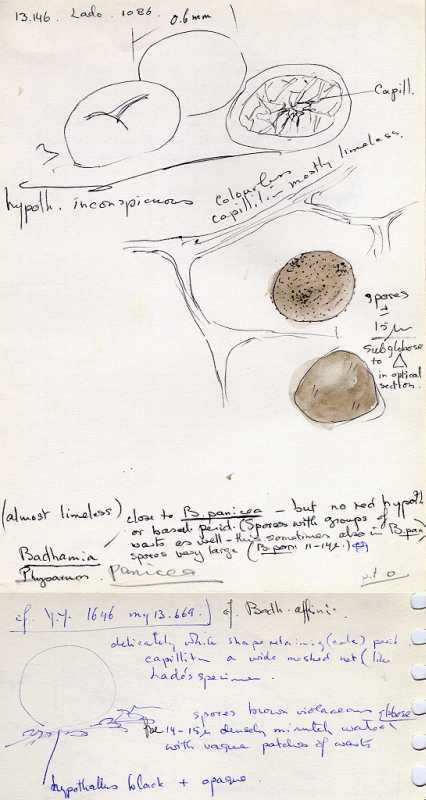 13.146. Lado. 1086.
0.6mm
Capill.
hypoth. inconspicuous
Colourless
capillitium mostly limeless.
spores
±
15 µ
subglobose
to △
in optical
section.
(almost limeless) close to B. panicea - but no red hypoth
or basal perid. (Spores with groups of
warts as well - this sometimes also in B. pan)
spores very large (B. pan 11-14µ.)
Badhamia
Physarum. panicea
p.t.o
cf. Y.Y. 1646 my 13.669.) cf. Badh. affinis.
delicately white shape retaining (calc) perid.
capillitium a wide meshed net (like
Lado's specimen
spores brown violaceous globose
14-15µ densely minutely warted
with vague patches of warts
hypothallus black + opaque.